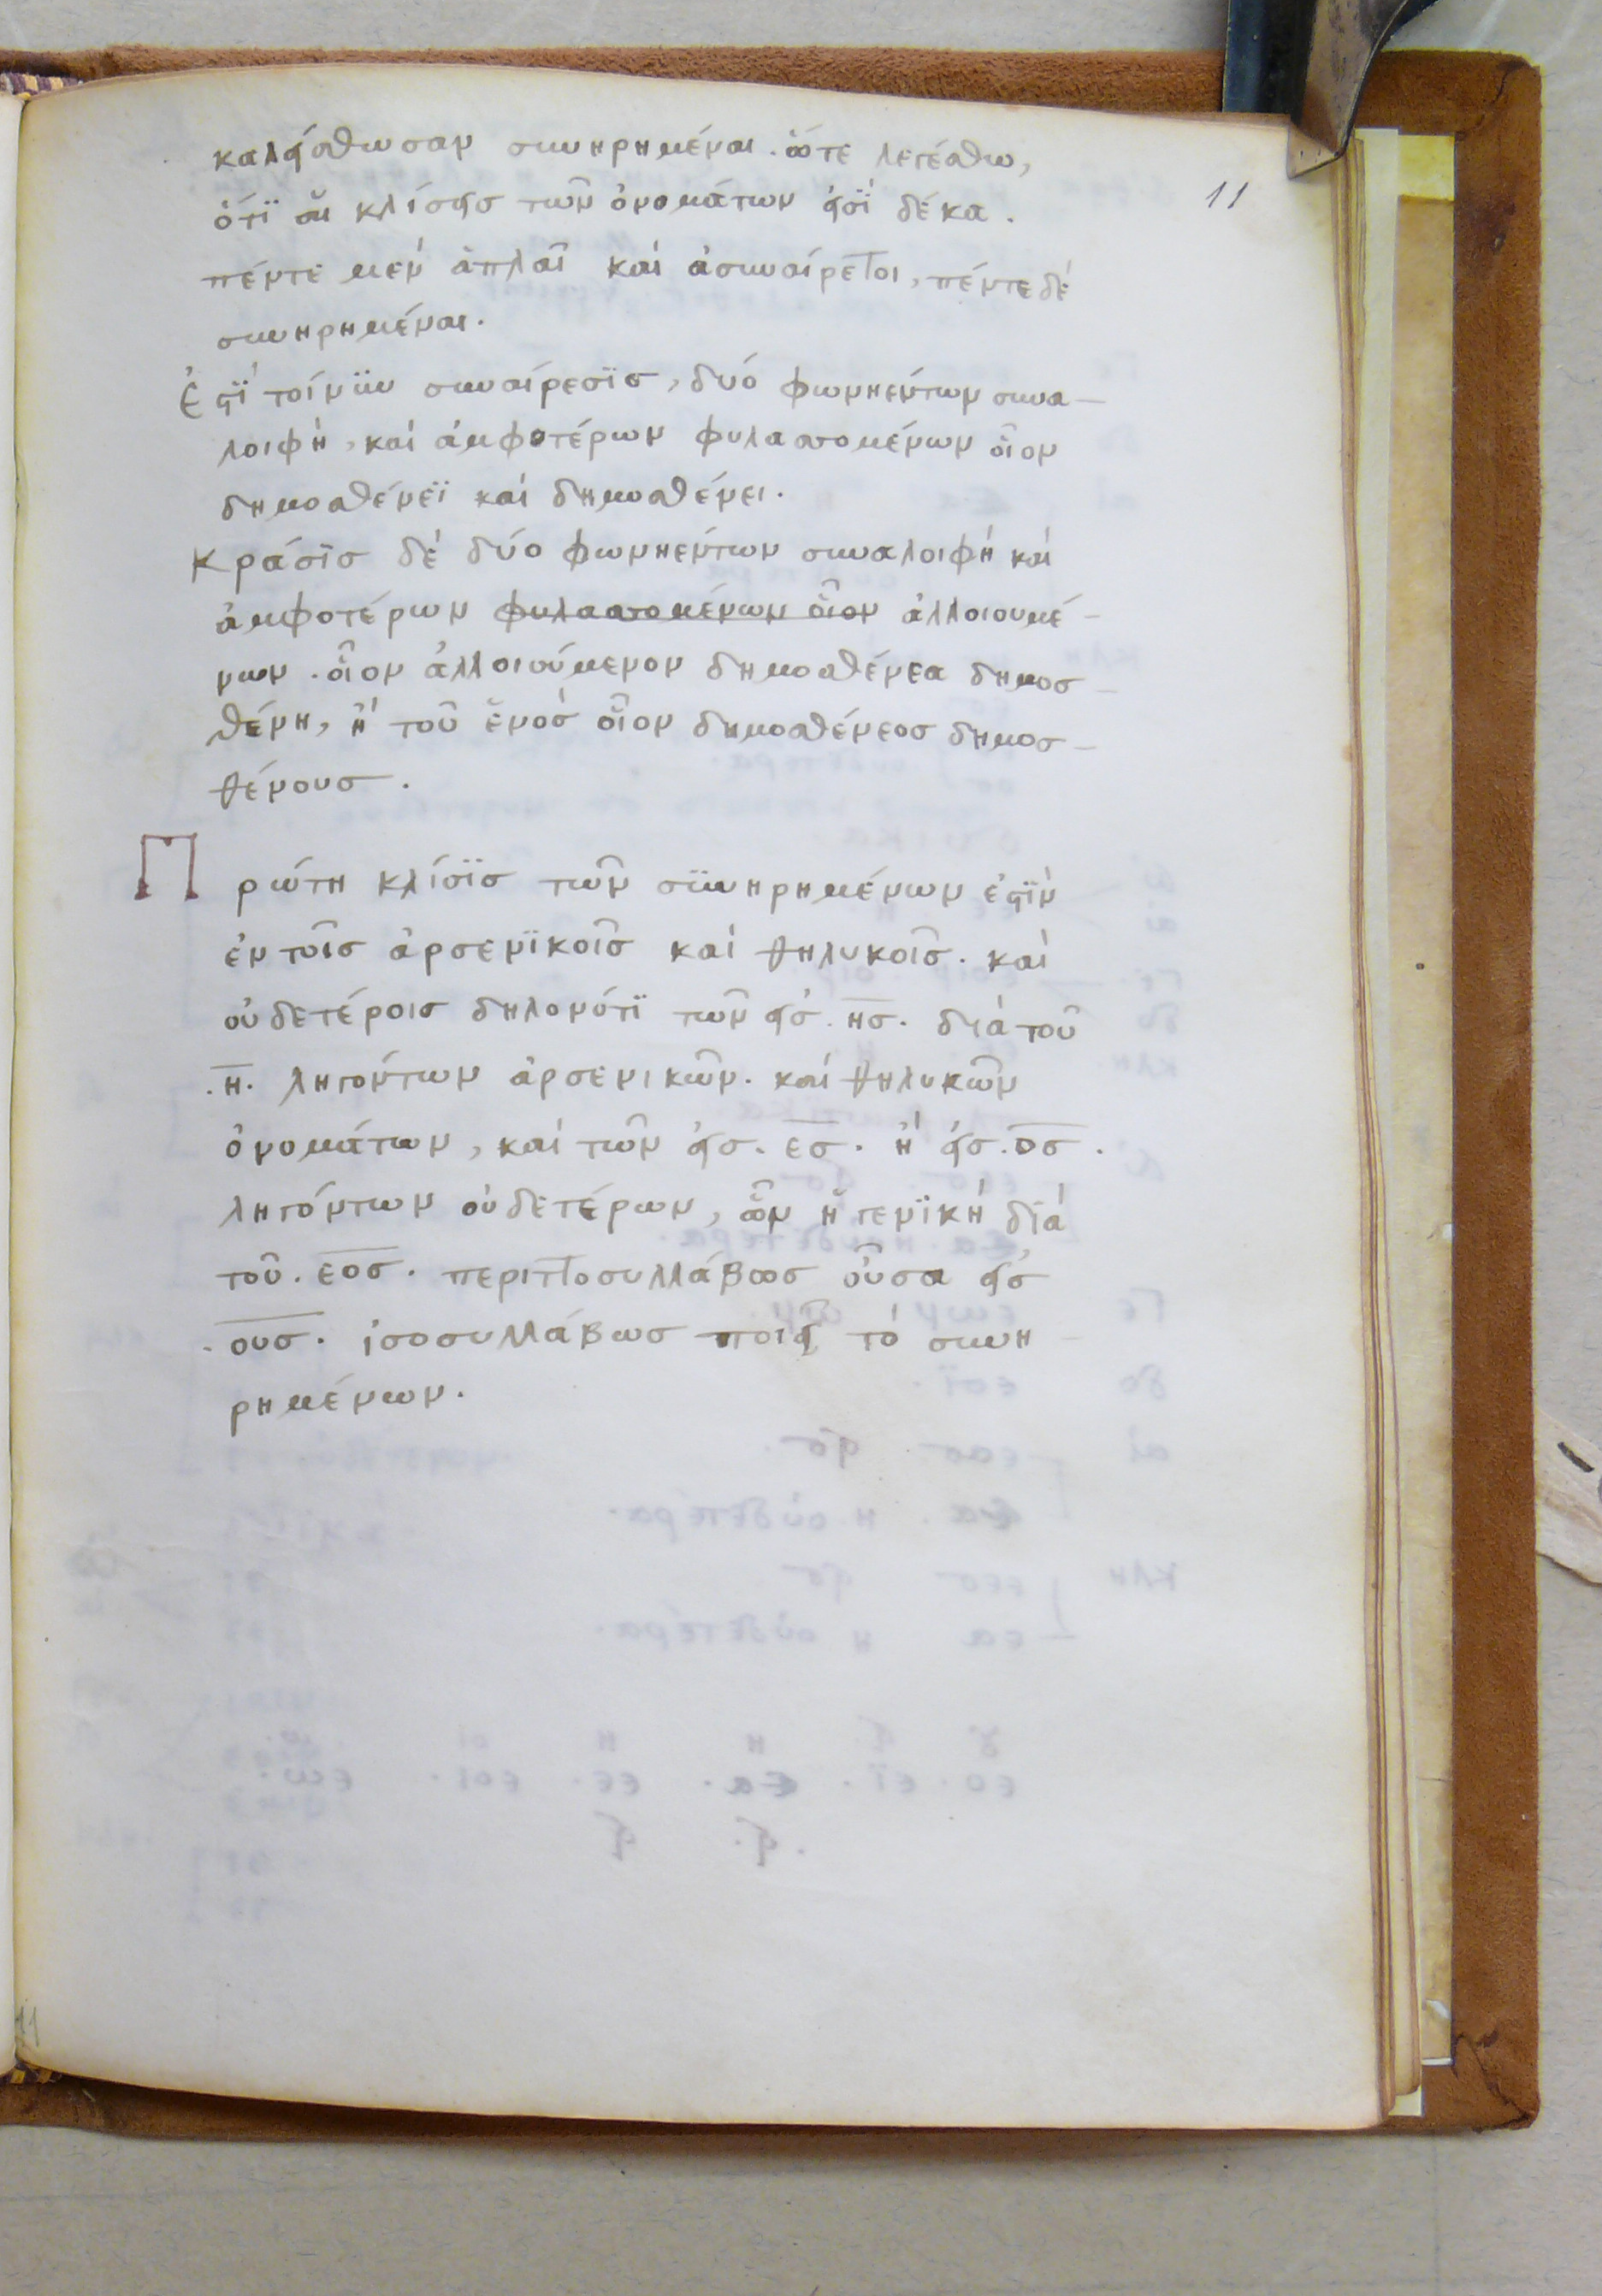 καλείσθωσαν συνηρημέναι. ὥστε λεγέσθω,
11
ὅτϊ αἱ κλίσεις τῶν ὀνομάτων εἰσῒ δέκα.
πέντε μὲν ἁπλαῖ καὶ ἀσυναίρετοι, πέντε δὲ
συνηρημέναι.
Ἐστῒ τοίνϋν συναίρεσϊς, δυό φωνηέντων συνα-
λοιφὴ, καὶ ἀμφοτέρων φυλαττομένων οἷον
δημοσθένεϊ καὶ δημοσθένει.
Κράσϊς δὲ δύο φωνηέντων συναλοιφὴ καὶ
ἀμφοτέρων φυλαττομένων οἷον ἀλλοιουμέ-
νων. οἷον ἀλλοιούμενον δημοσθένεα δημοσ-
θένη, ἢ τοῦ ἑνὸς οἷον δημοσθένεος δημοσ-
θένους.
Πρώτη κλίσϊς τῶν σϋνηρημένων ἐστῒν
ἐν τοῖς ἀρσενϊκοῖς καὶ θηλυκοῖς. καὶ
οὐδετέροις δηλονότϊ τῶν εἰς. ης. διὰ τοῦ
.η. ληγόντων ἀρσενικῶν. καὶ θηλυκῶν
ὀνομάτων, καὶ τῶν εἰς. ες. ἢ εἰς. ος.
ληγόντων οὐδετέρων, ὧν ἡ γενϊκὴ δϊὰ
τοῦ. εος. περιττοσυλλάβως οὖσα εἰς
.ους. ἰσοσυλλάβως ποιεῖ τὸ συνη-
ρημένων.